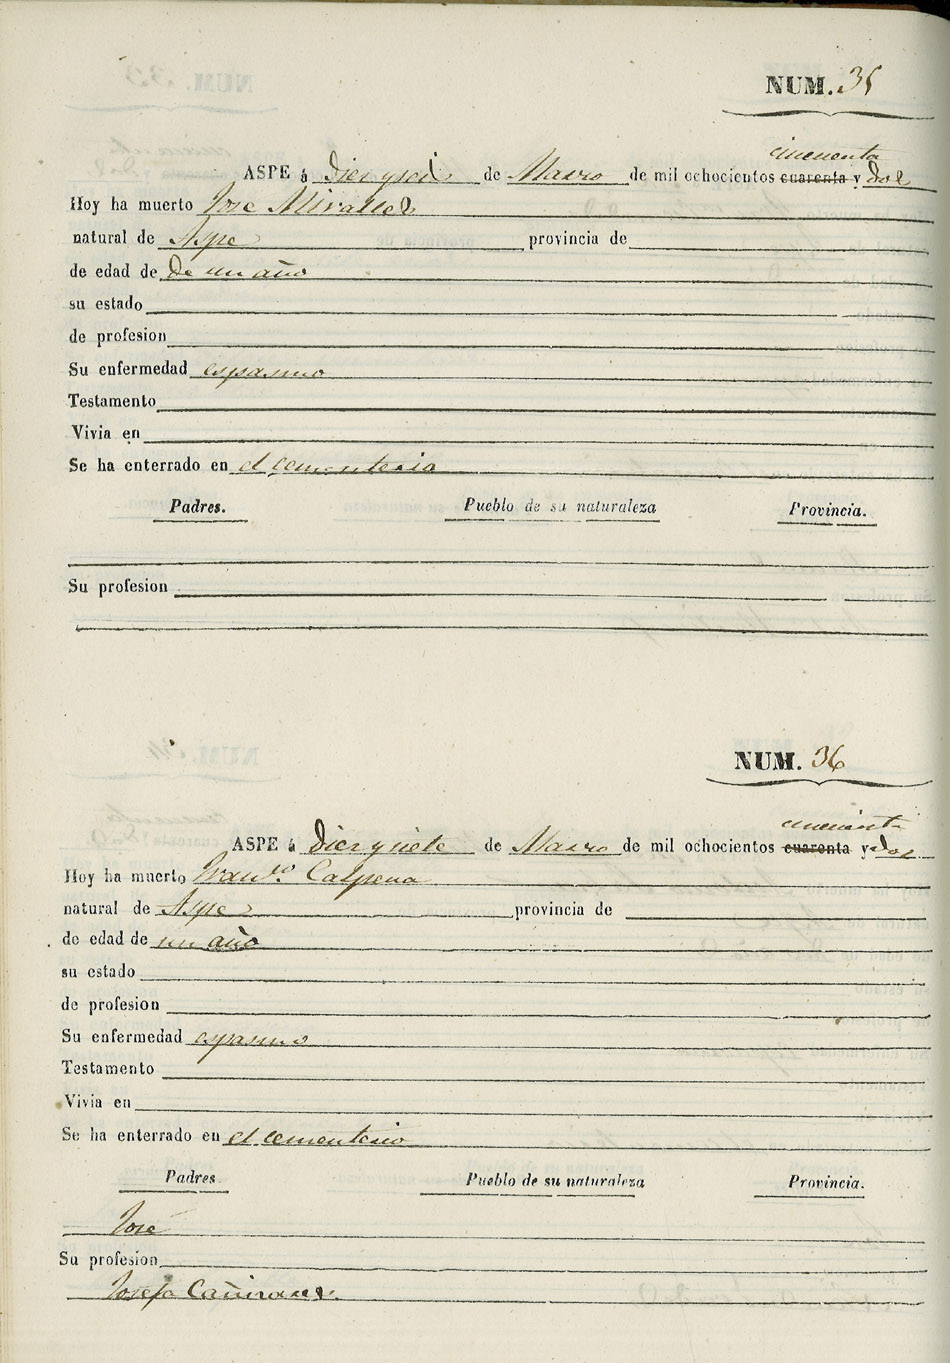 NUM. 35
cincuenta
ASPE á Diez y seis de Marzo de mil ochocientos cuarenta y dos
Hoy ha muerto Jose Miralles
natural de Aspe provincia de
de edad de de un año
su estado
de profesion
Su enfermedad espasmo
Testamento
Vivia en
Se ha enterrado en el cementerio
Padres. Pueblo de su naturaleza Provincia.
Su profesion
NUM. 36
cincuenta
ASPE á Diez y siete de Marzo de mil ochocientos cuarenta y dos
Hoy ha muerto Fran.co Calpena
natural de Aspe provincia de
de edad de un año
su estado
de profesion
Su enfermedad espasmo
Testamento
Vivia en
Se ha enterrado en el cementerio
Padres Pueblo de su naturaleza Provincia.
José
Su profesion
Josefa Cañizares.